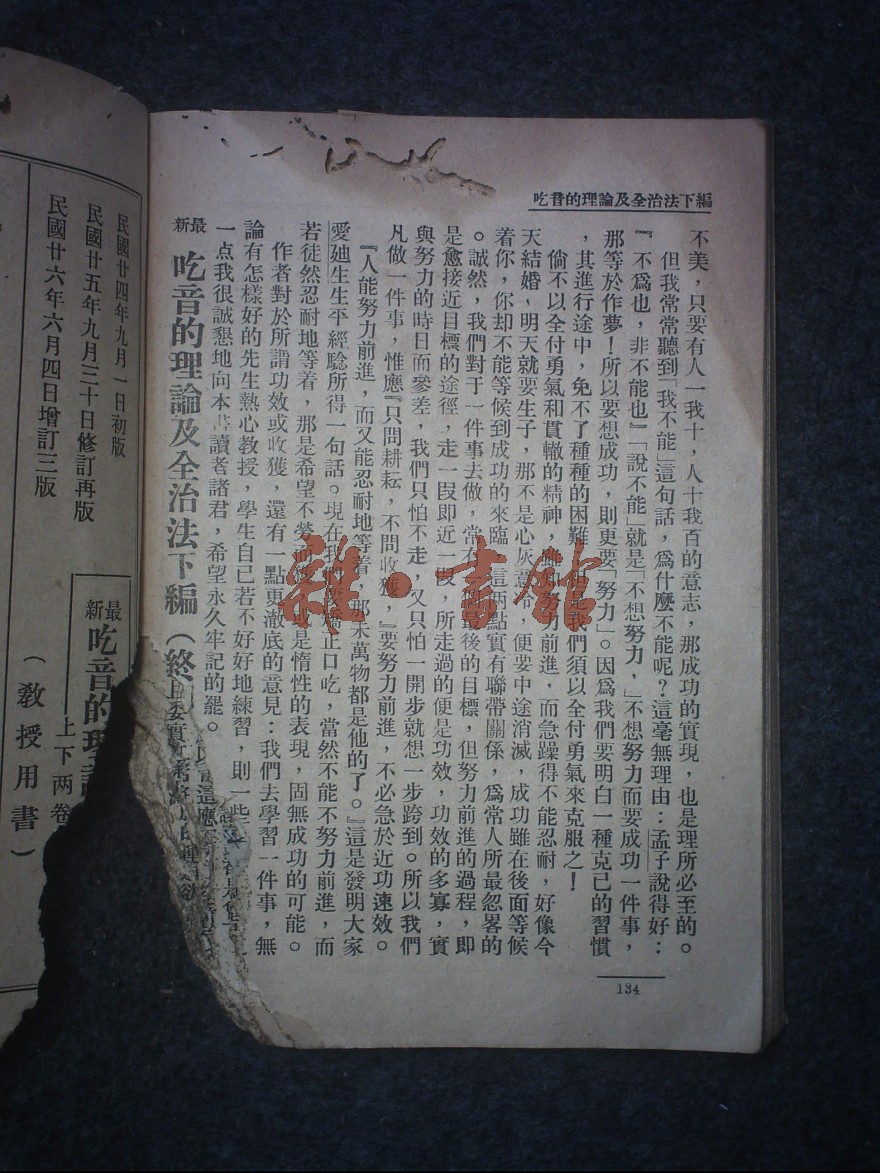 吃音的理論及全治法下編
不美，只要有人一我十，人十我百的意志，那成功的實現，也是理所必至的。
但我常常聽到「我不能」這句話，爲什麼不能呢？這毫無理由：孟子說得好：
『不爲也，非不能也』「說不能」就是「不想努力，」不想努力而要成功一件事，
那等於作夢！所以要想成功，則更要「努力」。因爲我們要明白一種克已的習慣
，其進行途中，免不了種種的困難，但是我們須以全付勇氣來克服之！
倘不以全付勇氣和貫轍的精神，雖知努力前進，而急躁得不能忍耐，好像今
天結婚，明天就要生子，那不是心灰意冷，便要中途消滅，成功雖在後面等候
着你，你却不能等候到成功的來臨，這兩點實有聯帶關係，爲常人所最忽畧的
。誠然，我們對于一件事去做，常有一個最後的目標，但努力前進的過程，即
是愈接近目標的途徑，走一段即近一段，所走過的便是功效，功效的多寡，實
與努力的時日而參差，我們只怕不走，又只怕一開步就想一步跨到。所以我們
凡做一件事，惟應『只問耕耘，不問收獲，』要努力前進，不必急於近功速效。
『人能努力前進，而又能忍耐地等着，那末萬物都是他的了。』這是發明大家
愛廸生生平經驗所得一句話。現在我們要矯正口吃，當然不能不努力前進，而
若徒然忍耐地等着，那是希望不勞而獲，或是惰性的表現，固無成功的可能。
作者對於所謂功效或收獲，還有一點更澈底的意見：我們去學習一件事，無
論有怎樣好的先生熱心教授，學生自己若不好好地練習，則一些
一点我很誠懇地向本書讀者諸君，希望永久牢記的罷。
最新 吃音的理論及全治法下編（終）
134
民國廿四年九月一日初版
民國廿五年九月三十日修訂再版
民國廿六年六月四日增訂三版
最新 吃音的理論
上下两卷
（教授用書）
雜·書館